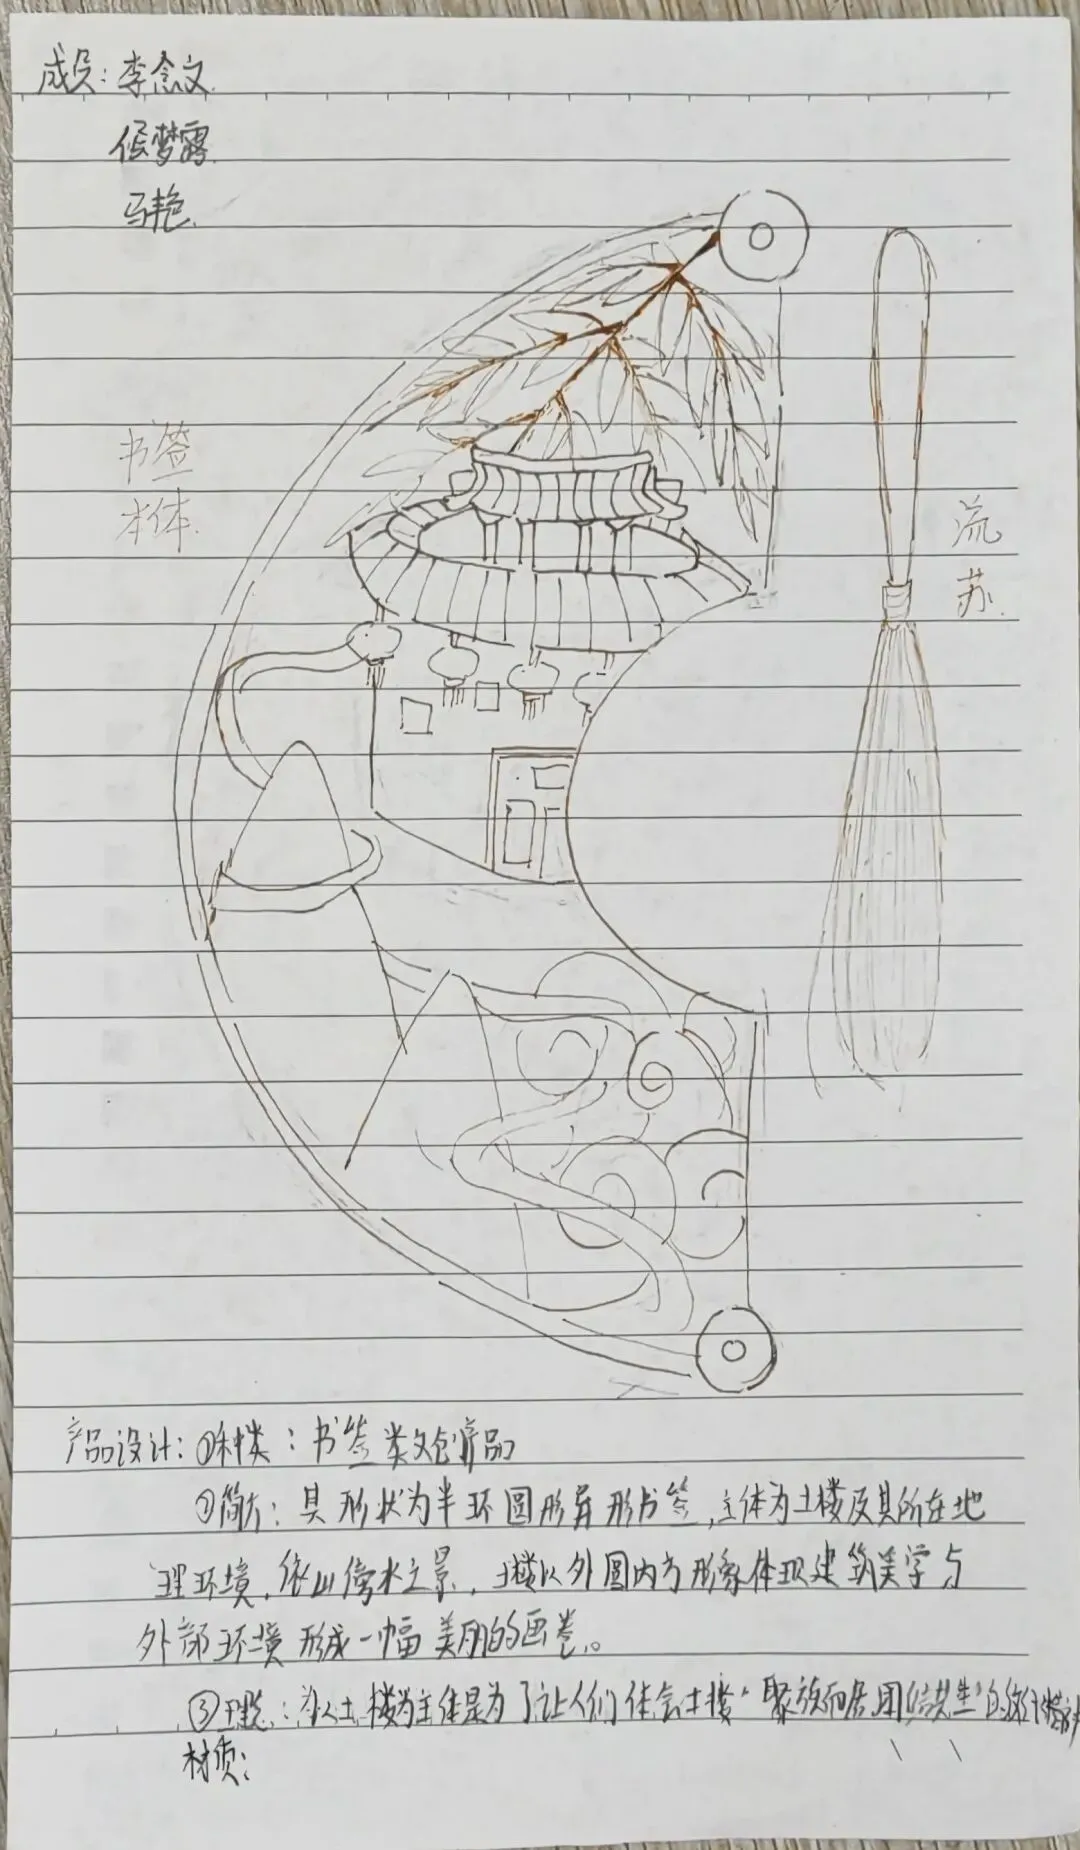 成员：李念文
侯梦露
马艳
书签
本体
流
苏
产品设计：①种类：书签类文创产品
②简介：其形状为半环圆形异形书签，主体为土楼及其所在地
理环境，依山傍水之景，土楼以外圆内方形象体现建筑美学与
外部环境形成一幅美丽的画卷。
③理念：为以土楼为主体是为了让人们体会土楼“聚族而居，团结共生”的
材质：